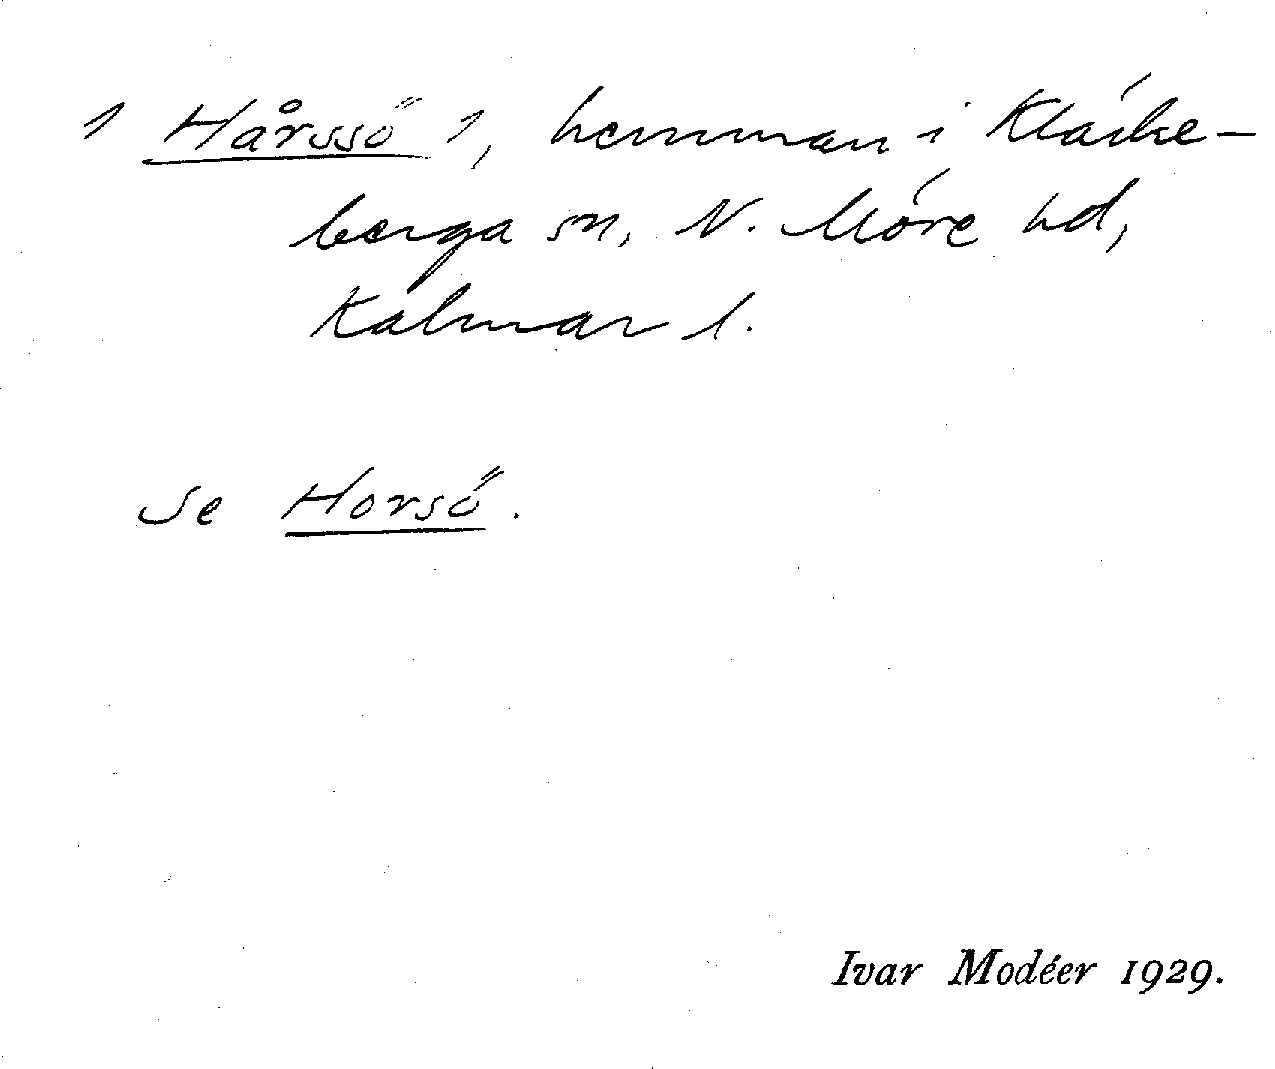 1 Hårssö 1, hemman i Kläcke-
berga sn, N. Möre hd,
Kalmar l.
Se Horsö.
Ivar Modéer 1929.